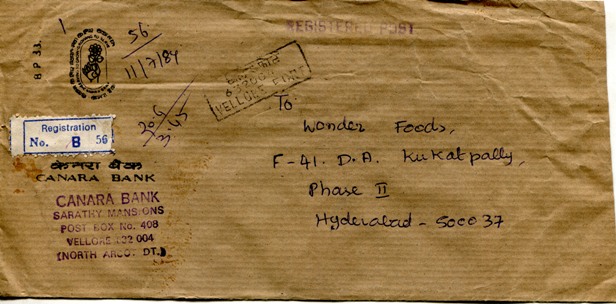 REGISTERED POST
BP 33.
1
56
11/7/84
VELLORE FORT
Registration
No. B 56
केनरा बैंक
CANARA BANK
CANARA BANK
SARATHY MANSIONS
POST BOX No. 408
VELLORE 632 004
(NORTH ARCOT DT.)
To
Wonder Foods,
F-41. D.A. Kukatpally,
Phase II
Hyderabad - 500037